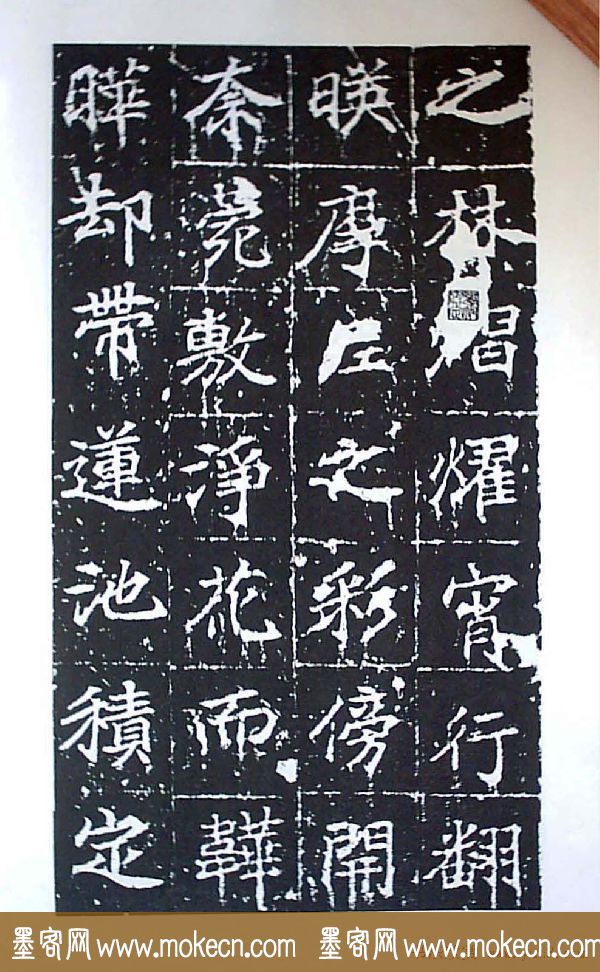 之林耀宵行翻
暎摩之彩傍開
奈菀敷淨花而韡
曄却帶蓮池積定
墨客网 www.mokecn.com 墨客网 www.mokecn.com